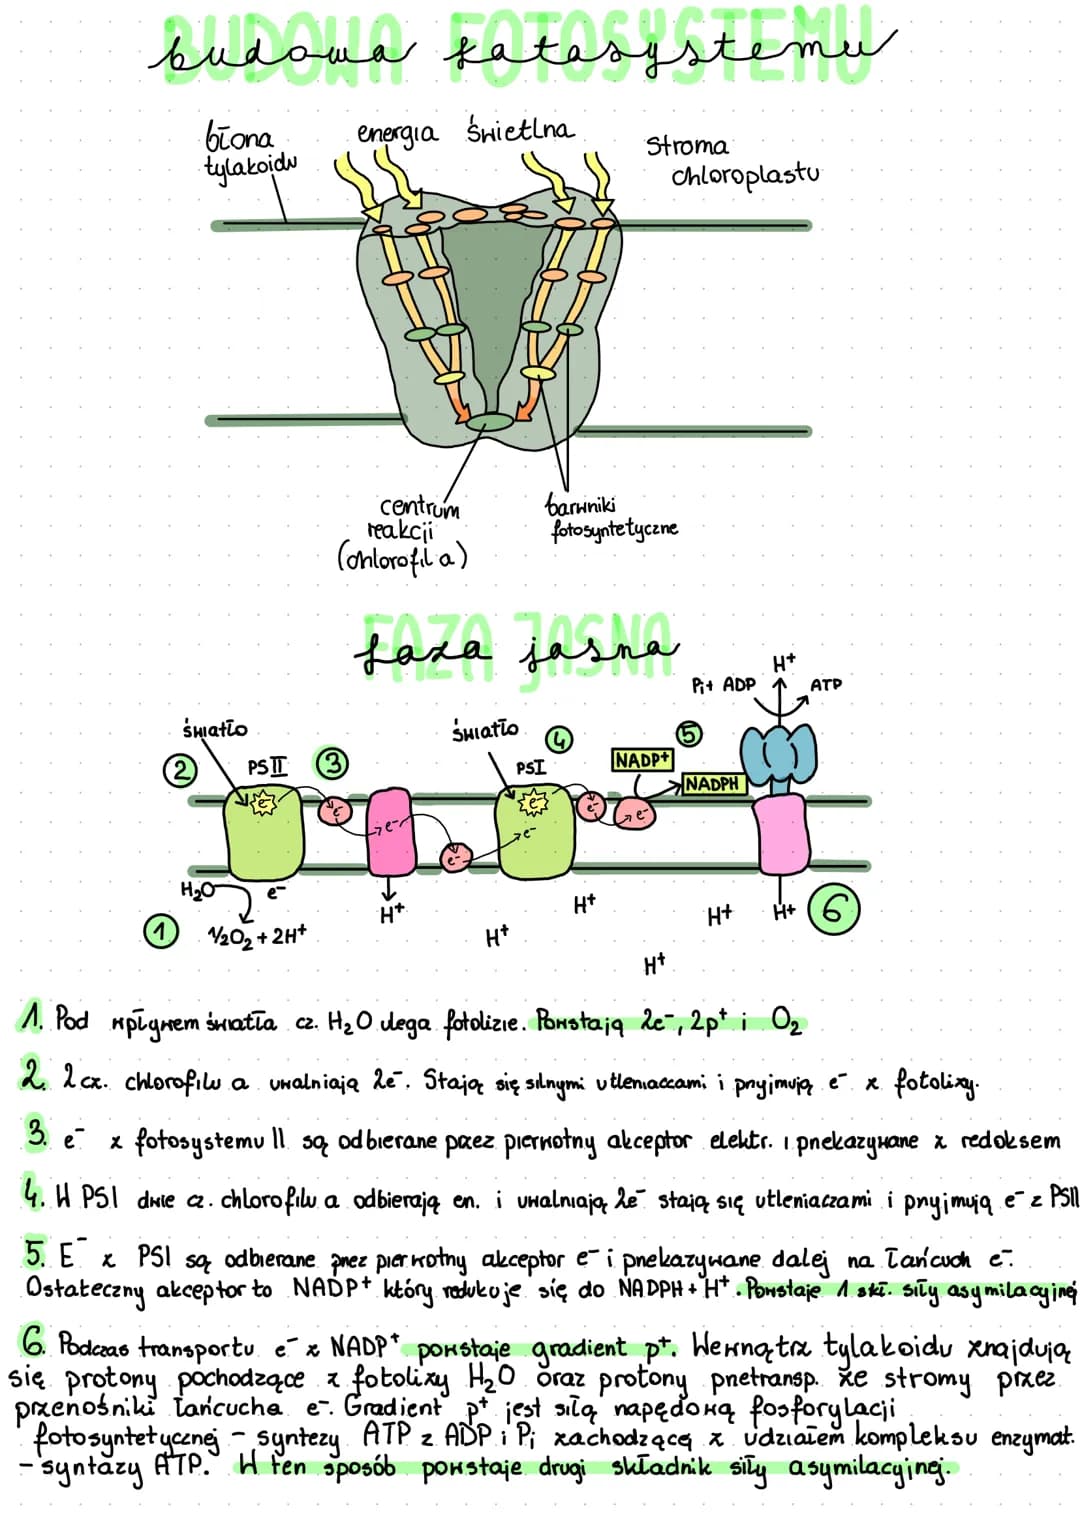 budowa fotosystemu
BUDOWA FOTOSYSTEMU
błona
tylakoidu
energia świetlna
Stroma
chloroplastu
centrum
reakcji
(chlorofil a)
barwniki
fotosyntetyczne
faza jasna
FAZA JASNA
H+
Pi+ ADP
ATP
światło
światło
4
5
2
PSII
3
PSI
NADP+
NADPH
e-
e-
e-
e-
e-
e-
e-
e-
H2O
e-
H+
H+
H+
H+
H+
6
1
1/2O2 + 2H+
H+
1. Pod wpływem światła cz. H2O ulega fotolizie. Powstają 2e-, 2p+ i O2
2. 2 cz. chlorofilu a uwalniają 2e-. Stają się silnymi utleniaczami i przyjmują e- z fotolizy.
3. e- z fotosystemu II są odbierane przez pierwotny akceptor elektr. i przekazywane z redoksem
4. W PSI dwie cz. chlorofilu a odbierają en. i uwalniają 2e- stają się utleniaczami i przyjmują e- z PSII
5. E- z PSI są odbierane przez pierwotny akceptor e- i przekazywane dalej na łańcuch e-.
Ostateczny akceptor to NADP+ który redukuje się do NADPH + H+. Powstaje 1 skł. siły asymilacyjnej
6. Podczas transportu e- z NADP+ powstaje gradient p+. Wewnątrz tylakoidu znajdują
się protony pochodzące z fotolizy H2O oraz protony przetransp. ze stromy przez
przenośniki łańcucha e-. Gradient p+ jest siłą napędową fosforylacji
fotosyntetycznej - syntezy ATP z ADP i Pi zachodzącą z udziałem kompleksu enzymat.
- syntazy ATP. W ten sposób powstaje drugi składnik siły asymilacyjnej.